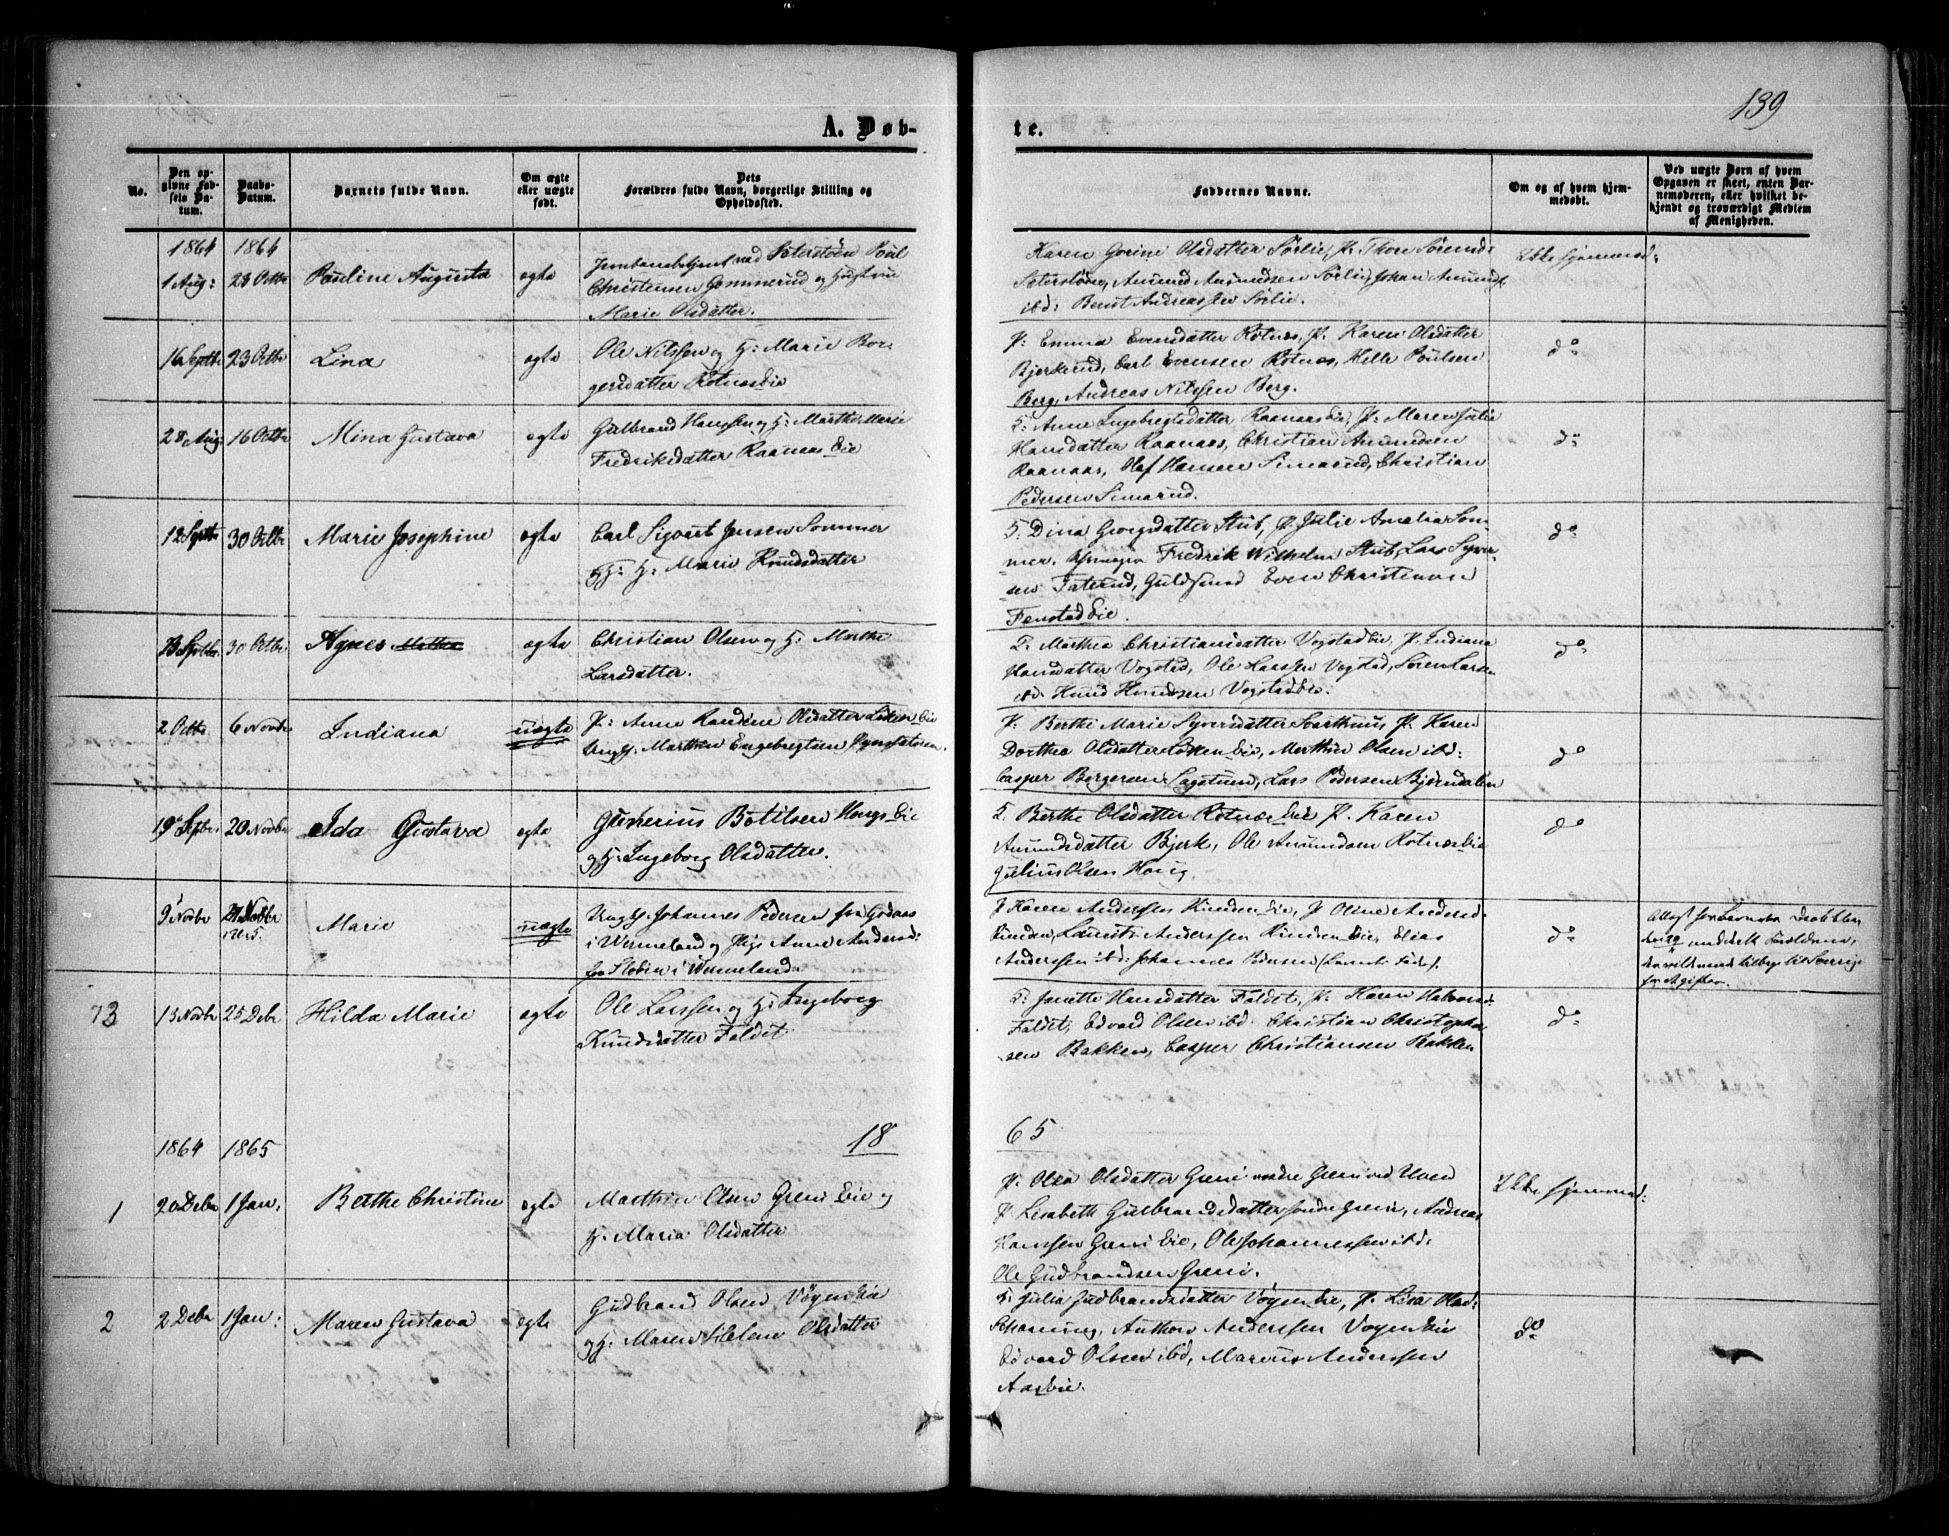 139
A. Døb-
te.
No.
Den op-
givne Fød-
sels Da-
tum.
Daabs-
Datum.
Barnets fulde Navn.
Om ægte
eller uægte
født.
Dets
Forældres fulde Navn, borgerlige Stilling og
Opholdssted.
Faddernes Navne.
Om og af hvem hjem-
medøbt.
Ved uægte Børn af hvem
Opgaven er skeet, enten Bar-
nemoderen, eller hvilket be-
kjendt og troværdigt Medlem
af Menigheden.
1864 1864
1 Aug: 23 Octbr Pauline Augusta ægte
Jernbanebetjent ved Seterstøen Poul
Christensen Gommerud og Hustrue
Marie Olsdatter.
Karen Gorine Olsdatter Sørlie, P. Thore Sørensd:
Seterstøen, Amund Amundsen Sørlie, Johan Amunds.
ibd: Bernt Andreassen Sørlie.
Ikke hjemmed:
16 Septbr 23 Octbr Lina ægte
Ole Nilssen og H: Marie Bor-
gersdatter Rotnæseie
P: Emma Evensdatter Rotnæs, P. Karen Olsdatter
Bjerkund, Carl Evensen Rotnæs, Helle Poulsen
Berg, Andreas Nilssen Berg.
do
28 Aug 16 Octbr Mina Gustava ægte
Gulbrand Hanssen og H: Marthe Marie
Fredriksdatter Raanaas Eie
F. Anne Ingebregtsdatter Raanaaseie, P. Maren Julie
Hansdatter Raanaas, Christian Amundsen
Raanaas, Olaf Hansen Simarud, Christian
Pedersen Simarud.
do
12 Septbr 30 Octbr Marie Josephine ægte
Carl Sigvart Jensen Sommer
og H: Marie Knudsdatter
F. Dina Georgsdatter Stub, P. Julie Amalia Som-
mer, Fredrik Wilhelm Stub, Lars Syver-
sen Taterud, Guldsmed Even Christiansen
Fenstad Eie.
do
13 Septbr 30 Octbr Agnes Mathea ægte
Christian Olsen og H: Marthe
Larsdatter.
F. Marthea Christiansdatter Vogstadeie, P. Indiana
Hansdatter Vogstad, Ole Larssen Vogstad, Søren Larsen
ibd. Knud Knudsen Vogstadeie.
do
2 Octbr 6 Novbr Indiana uægte
P: Anne Randine Olsdatter Løken Eie
Ungk. Marthin Engebregtsen
P: Berthe Marie Syversdatter Svarthuus, P. Karen
Dorthea Olsdatter Løken Eie, Marthin Olsen ibd:
Casper Borgersen Sagstuen, Lars Pedersen Bjørndalen
do
19 Septbr 20 Novbr Ida Gustava ægte
Gunerius Botilsen Houg Eie
og H: Ingeborg Olsdatter.
F. Berthe Olsdatter Rotnæs Eie, P. Karen
Amundsdatter Bjerk, Ole Amundsen Rotnæseie
Gulius Olsen Houg
do
9 Novbr Marie uægte
Ungk. Johannes Pedersen fra
i Wermeland og Pige Anne Andersd:
fra i Wermeland
P. Karen Andersen Kinden Eie, P. Oline Andersd.
Kinden, Laurits Anderssen Kinden Eie, Elias
Anderssen ibd: Johannes Pedersen
do
73 13 Novbr 25 Debr Hilda Marie ægte
Ole Larssen og H: Ingeborg
Knudsdatter Faldet
F. Janette Hansdatter Faldet, P. Karen Halvorsd:
Faldet, Edvard Olsen ibd. Christian Christopher-
sen Bakken, Casper Christiansen Bakken
do
1864 1865
18 65
1 20 Debr 1 Jan: Berthe Christine ægte
Marthin Olsen Greni Eie og
H: Maria Olsdatter
P. Olea Olsdatter Greni nordre Greni ved Uven
P. Lisabeth Gulbrandsdatter søndre Greni, Andreas
Hanssen Greni Eie, Ole Johannessen ibd:
Ole Gudbrandsen Greni.
Ikke hjemmed:
2 2 Debr 1 Jan: Maren Gustava ægte
Gudbrand Olsen Vøyen Eie
og H: Maren Helene Olsdatter
F. Julia Gudbrandsdatter Vøyen Eie, P. Lisa Olsd:
Schanning, Anthon Anderssen Vøyen Eie
Edvard Olsen ibd, Marius Anderssen
Aaseie.
do